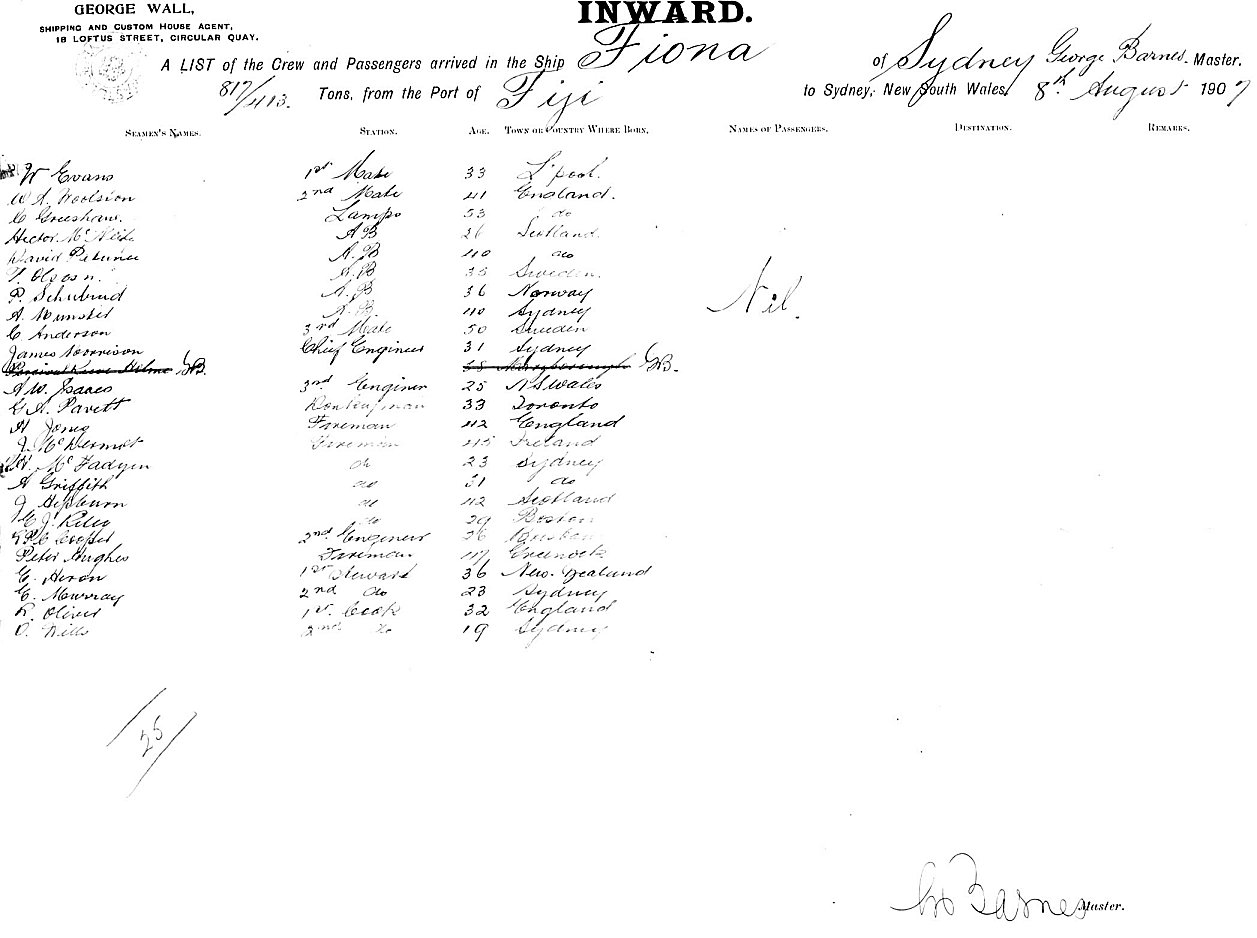 GEORGE WALL,
SHIPPING AND CUSTOM HOUSE AGENT,
18 LOFTUS STREET, CIRCULAR QUAY.
INWARD.
A LIST of the Crew and Passengers arrived in the Ship Fiona of Sydney George Barnes Master.
817/413. Tons, from the Port of Fiji to Sydney, New South Wales, 8th August 1907
SEAMEN'S NAMES. STATION. AGE. TOWN OR COUNTRY WHERE BORN. NAMES OF PASSENGERS. DESTINATION. REMARKS.
W Evans 1st Mate 33 L'pool.
W A Woolston 2nd Mate 41 England.
C Greeshaw. Lamps 53 do
Hector Mc A.B 26 Scotland.
David A.B 40 do
T. Olsson. A.B 35 Sweden.
P. Schubrud A.B 36 Norway
A. Munster A.B. 40 Sydney
Nil.
C Anderson 3rd Mate 50 Sweden
James Morrison Chief Engineer 31 Sydney
GB. GB.
A W. Isaacs 3rd Engineer 25 N S Wales
G A. Pavett Donkeyman 33 Toronto
H Jones Fireman 42 England
J. McDermot Fireman 45 Ireland
W. McFadyen do 23 Sydney
A Griffith do 31 do
J Hepburn do 42 Scotland
J. Riley do 29 Boston
Cooper 2nd Engineer 26
Peter Hughes Fireman 47 Greenock
C. Heron 1st Steward 36 New Zealand
C. Murray 2nd do 23 Sydney
R. Oliver 1st Cook 32 England
O. Wills 2nd do 19 Sydney
25
Geo Barnes Master.